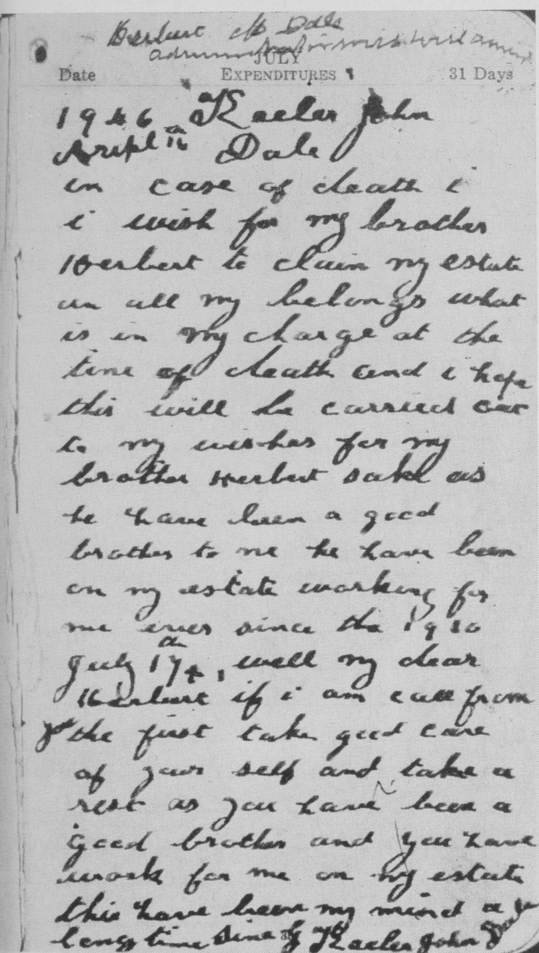 Herbert M Dale
administrator with will annex
JULY
Date EXPENDITURES 31 Days
1946 Keeler John
Aripl 16th Dale
in case of death i
i wish for my brother
Herbert to claim my estate
an all my belongs what
is in my charge at the
time of death and i hope
this will be carried out
to my wishes for my
brother Herbert sake as
he have been a good
brother to me he have been
on my estate working for
me ever since the 1910
July 17th, well my dear
Herbert if i am call from
the first take good care
of your self and take a
rest as you have been a
good brother and you have
work for me on my estate
this have been my mind a
long time Sine Keeler John Dale